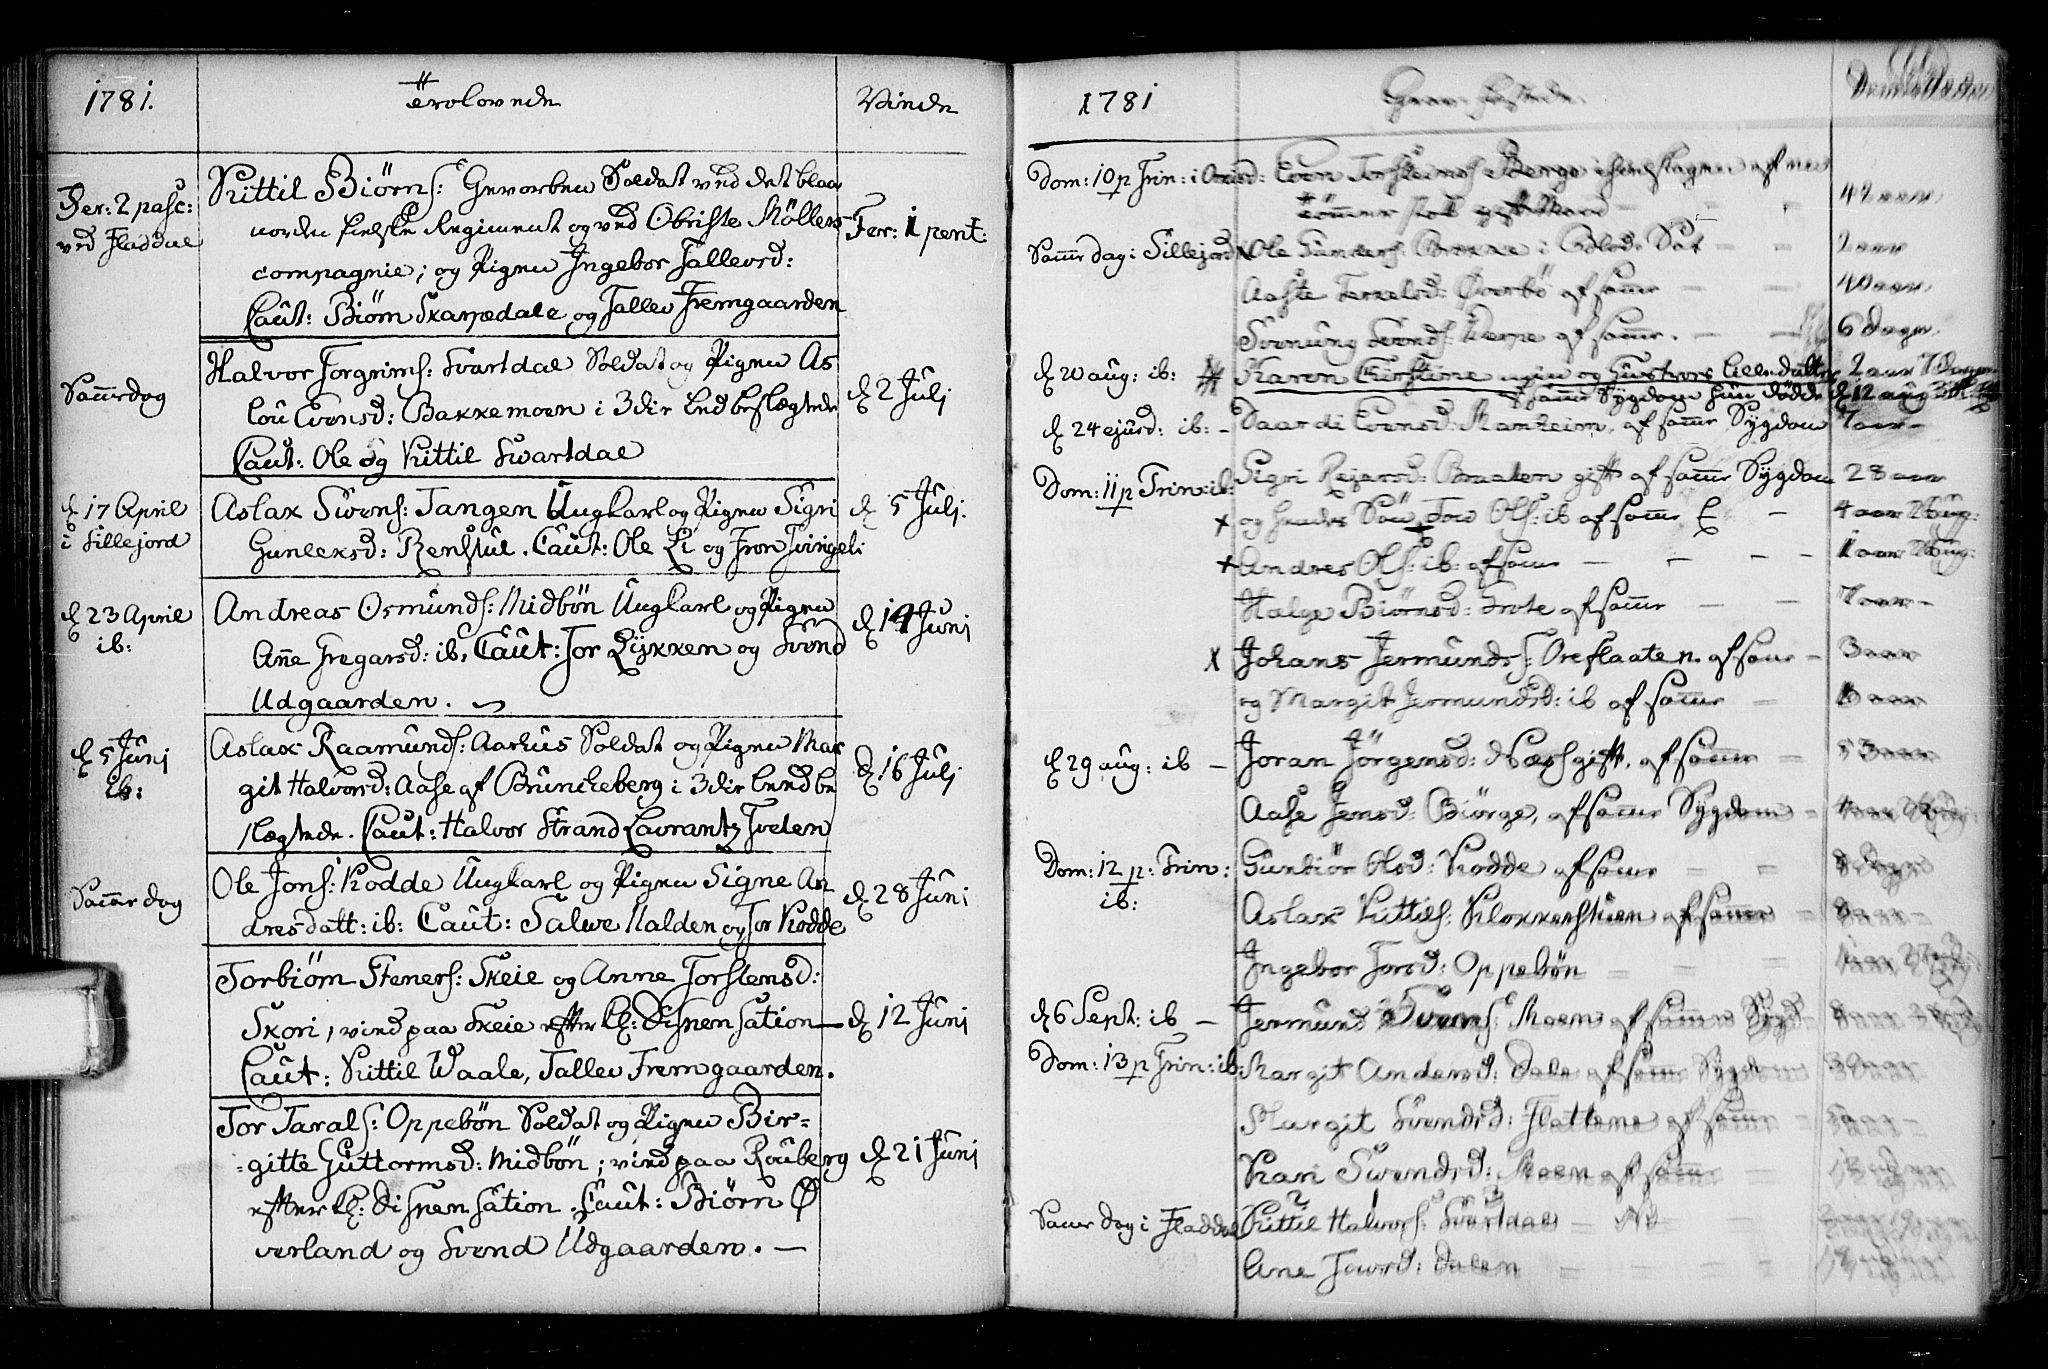 1781.
Trolovede
Viede
Fer: 2 pasc:
ved Fladdal
Kittil Biörns: Gevorben Soldat ved det blaa
norden fielske Regiment og ved Obriste Möllers
compagnie; og Pigen Ingebor Tallevsd:
Caut: Biörn Skarpedale og Tallev Fremgaarden
Fer: 1 pent:
Samme dag
Halvor Torgrims: Svartdal Soldat og Pigen As
lou Evensd: Bakkemoen i 3die Led beslægtede
Caut: Ole og Kittil Svartdal
d 2 Julj
d 17 April
i Sillejord
Aslak Svens: Tangen Ungkarl og Pigen Sigri
Gunleksd: Rensful. Caut: Ole Li og Tron Tvingeli
d 5 Julj.
d 23 April
ib:
Andreas Osmunds: Midbön Ungkarl og Pigen
Anne Gregarsd: ib. Caut: Tor Lykken og Svend
Udgaarden.
d 14 Junj
d 5 Junj
ib:
Aslak Raamunds: Aarhus Soldat og Pigen Mar
git Halvorsd: Aase af Brunckeberg i 3die Leed be
slægtede. Caut: Halvor Strand Lavrantz Tveten
d 16 Julj
Samme dag
Ole Jons: Kodde Ungkarl og Pigen Signe An
dresdatt: ib: Caut: Salwe Nalden og Tor Kodde
d 28 Junj
Torbiörn Steners: Skeie og Anne Torstensd:
Skori, vied paa Skeie efter kl: Dispensation
Caut: Kittil Waale, Tallev Fremgaarden.
d 12 Junj
Tor Tarals: Oppebön Soldat og Pigen Bir=
=gitte Guttormsd: Midbön; vied paa Rouberg
efter kl: Dispensation. Caut: Biörn Ø
verland og Svend Udgaarden.
d 21 Junj
1781
Grav-fæstede
Dom: 10 p Trin: i Omisd: Even Torsteins: Berge ihielslagen af en
tömmer stok gift Mand 42 aar
Samme dag i Sillejord Ole Gunders: Brekke i Blod Sot 2 aar
Aaste Terkelsd: Överbö af samme 40 aar
Svenung Svends: Verpe af samme. 6 Dage.
d 20 aug: ib: Karen Kirstine min og Hustrues lille datter 2 aar 7 Dage
samme Sygdom hun döde d 12 aug
d 24 ejusd: ib: Daardi Evensd: Manheim, af samme Sygdom 7 aar
Dom: 11 p Trin: ib: Sigri Rejarsd: Braaten gift af samme Sygdom 28 aar
og hendes Sön Tov Ols: ib af samme 4 aar
Andres Ols: ib: af samme 1 aar
Halge Biörnsd: Grote af samme 7 aar
Johans Jermunds: Oreflaaten af samme 3 aar
og Margit Jermundsd: ib af samme
d 29 aug: ib Joran Jörgensd: Næs gift, af samme 53 aar
Aase Jensd: Biörge, af samme Sygdom
Dom: 12 p: Trin: Gunbiör Olsd: Kodde af samme
ib: Aslak Kittils: Klokkerstuen af samme
Ingebor Torsd: Oppebön
d 6 Sept: ib Jermund Svens: Moen af samme Sygd
Dom: 13 p Trin: ib: Margit Andersd: Dale af samme Sygd
Margit Svendsd: Flattene af samme
Kari Svendsd: Moen af samme
Samme dag i Fladdal Kittil Halvors: Svartdal
Ane Tovsd: Dalen